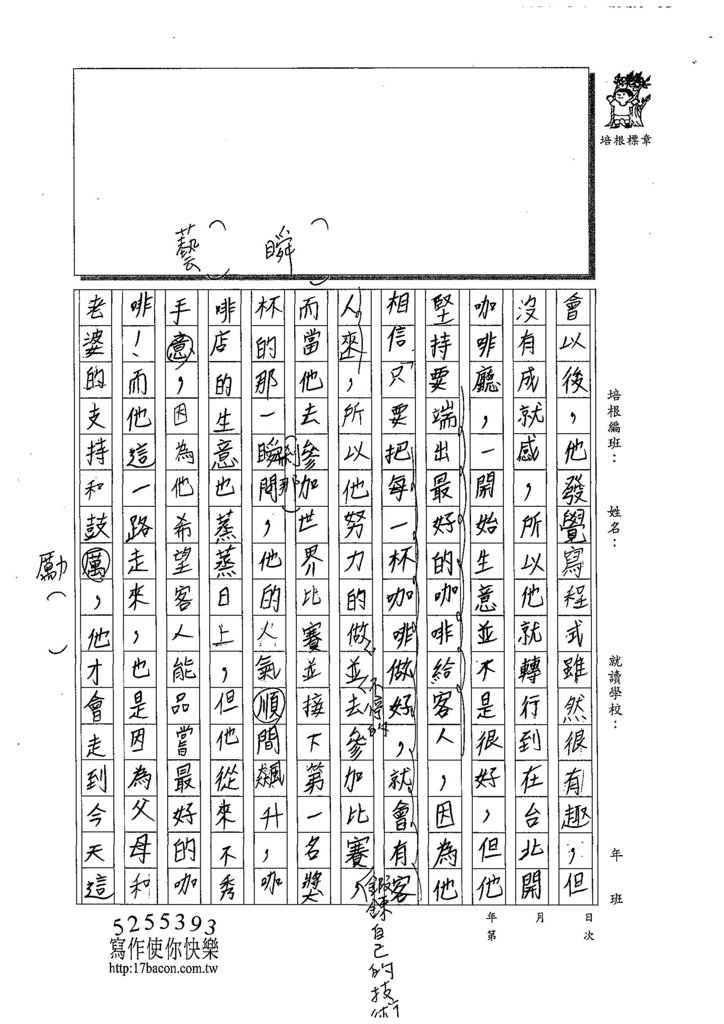 培根標章
瞬（　）
藝（　）
會以後，他發覺寫程式雖然很有趣，但
沒有成就感，所以他就轉行到在台北開
咖啡廳，一開始生意並不是很好，但他
堅持要端出最好的咖啡給客人，因為他
相信只要把每一杯咖啡做好，就會有客
人來，所以他努力的做並去參加比賽，
不停的
鍛鍊自己的技術
而當他去參加世界比賽並接下第一名獎
剎那
杯的那一瞬間，他的人氣順間飆升，咖
啡店的生意也蒸蒸日上，但他從來不秀
手意，因為他希望客人能品嘗最好的咖
啡！而他這一路走來，也是因為父母和
老婆的支持和鼓厲，他才會走到今天這
勵（　）
培根編班：
姓名：
就讀學校：
年　班
年　月　日
第　次
5255393
寫作使你快樂
http:17bacon.com.tw